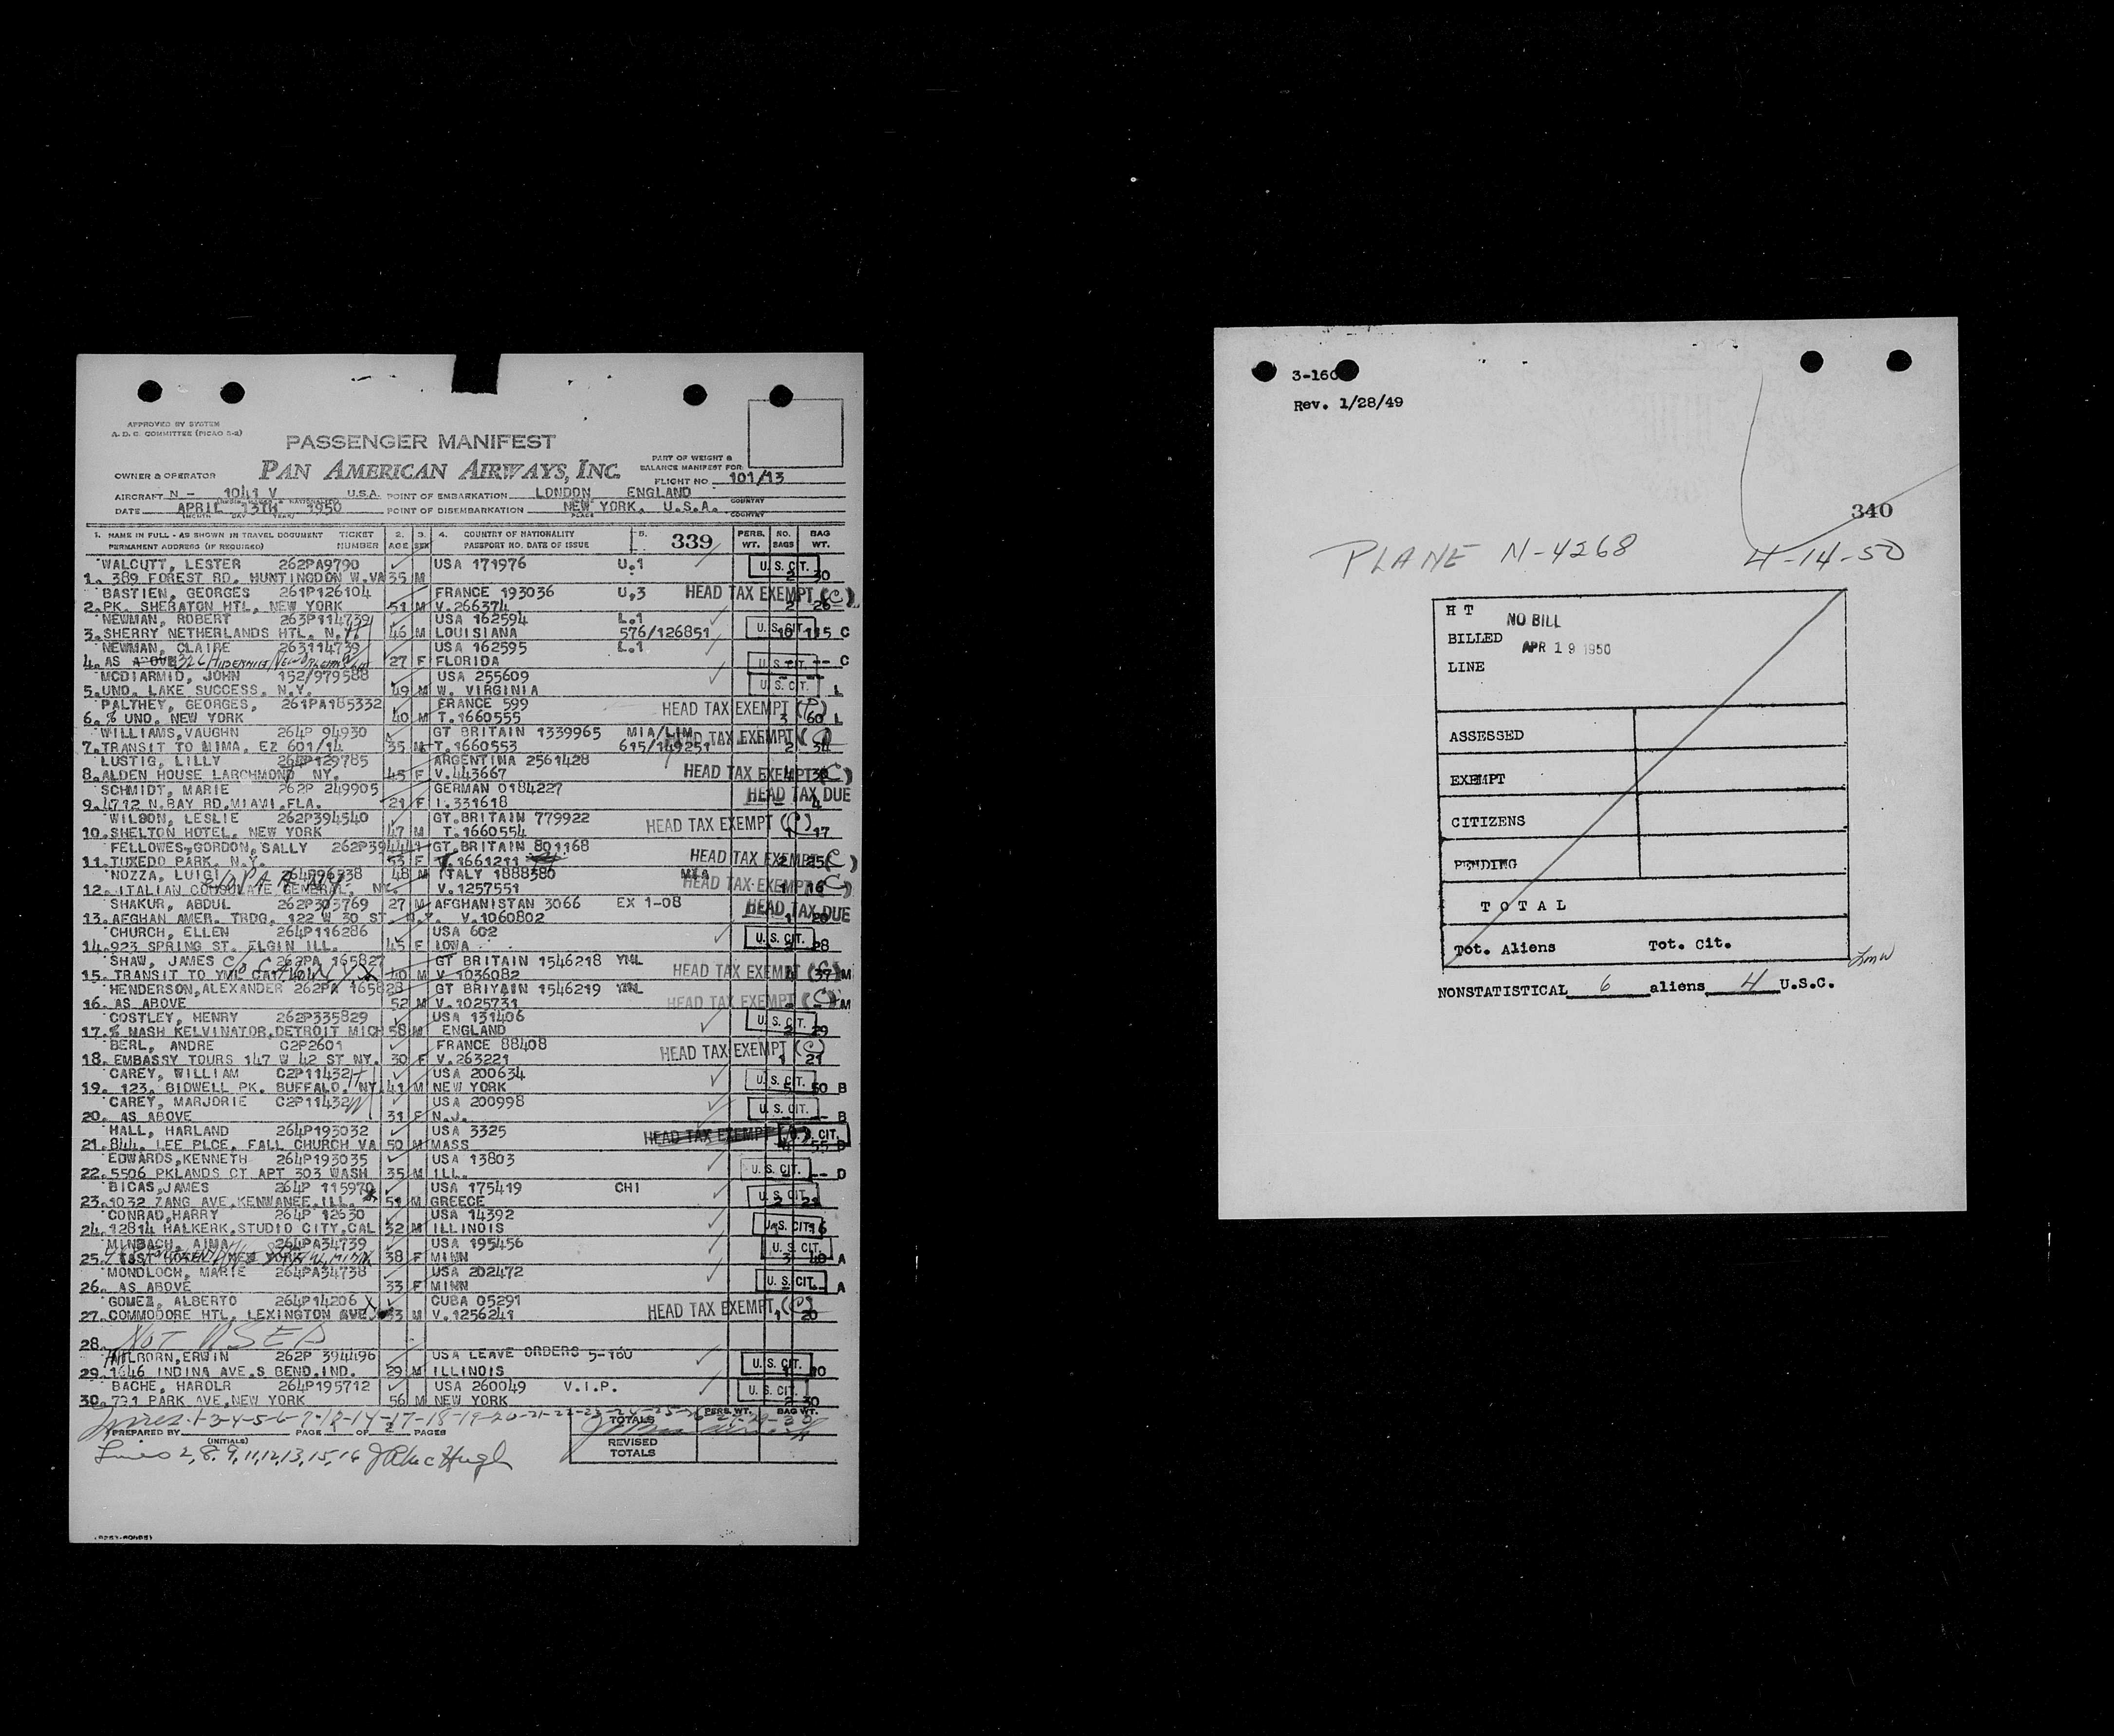 APPROVED BY SYSTEM
A. D. C. COMMITTEE (PICAO 5-2)
PASSENGER MANIFEST
OWNER & OPERATOR PAN AMERICAN AIRWAYS, INC.
PART OF WEIGHT &
BALANCE MANIFEST FOR
FLIGHT NO 101/13
AIRCRAFT N - 1041 V U.S.A. POINT OF EMBARKATION LONDON ENGLAND
COUNTRY
DATE APRIL 13TH 1950 POINT OF DISEMBARKATION NEW YORK, U.S.A.
(MONTH DAY YEAR) PLACE COUNTRY
1. NAME IN FULL - AS SHOWN IN TRAVEL DOCUMENT TICKET 2. 3. 4. COUNTRY OF NATIONALITY 5. 339 PERS. NO. BAG
PERMANENT ADDRESS (IF REQUIRED) NUMBER AGE SEX PASSPORT NO. DATE OF ISSUE WT. BAGS WT.
WALCUTT, LESTER 262PA9790 USA 171976 U.1 U. S. CIT.
1. 389 FOREST RD. HUNTINGDON W.VA 35 M 2 30
BASTIEN, GEORGES 261P126104 FRANCE 193036 U.3 HEAD TAX EXEMPT (C)
2. PK. SHERATON HTL, NEW YORK 51 M V.266374 2 26
NEWMAN, ROBERT 263P114739 USA 162594 L.1
3. SHERRY NETHERLANDS HTL. N.Y. 46 M LOUISIANA 576/126851 U. S. CIT. 10 115 C
NEWMAN, CLAIRE 263114739 USA 162595 L.1
4. AS ABOVE 27 F FLORIDA U. S. CIT. -- C
MCDIARMID, JOHN 152/979588 USA 255609
5. UNO. LAKE SUCCESS, N.Y. 49 M W. VIRGINIA U. S. CIT. L
PALTHEY, GEORGES, 261PA185332 FRANCE 599 HEAD TAX EXEMPT
6. % UNO. NEW YORK 40 M T.1660555 3 60 L
WILLIAMS, VAUGHN 264P 94930 GT BRITAIN 1339965 MIA/LIM HEAD TAX EXEMPT
7. TRANSIT TO MIMA, EZ 601/14 35 M T.1660553 615/149251 2 34
LUSTIG, LILLY 264P129785 ARGENTINA 2561428
8. ALDEN HOUSE LARCHMOND NY. 45 F V.443667 HEAD TAX EXEMPT (C)
SCHMIDT, MARIE 262P 249905 GERMAN 0184227 HEAD TAX DUE
9. 4712 N.BAY RD, MIAMI, FLA. 21 F I.331618 4
WILSON, LESLIE 262P394540 GT.BRITAIN 779922 HEAD TAX EXEMPT (C)
10. SHELTON HOTEL, NEW YORK 47 M T.1660554 17
FELLOWES-GORDON, SALLY 262P394441 GT.BRITAIN 801168
11. TUXEDO PARK. N.Y. 53 F T.1661211 HEAD TAX EXEMPT (C) 2 25
NOZZA, LUIGI 264P96938 48 M ITALY 1888380 MIA
12. ITALIAN CONSULATE GENERAL, NY. V.1257551 HEAD TAX EXEMPT (C) 1 16
SHAKUR, ABDUL 262P303769 27 M AFGHANISTAN 3066 EX 1-08 HEAD TAX DUE
13. AFGHAN AMER. TRDG. 122 W 30 ST. N.Y. V.1060802 1 20
CHURCH, ELLEN 264P116286 USA 602
14. 923 SPRING ST. ELGIN ILL. 45 F IOWA U. S. CIT. 28
SHAW, JAMES 262PA 165827 GT BRITAIN 1546218 YML
15. TRANSIT TO YML 40 M V 1036082 HEAD TAX EXEMPT (C) 37 M
HENDERSON, ALEXANDER 262PA 165828 GT BRIYAIN 1546219 YML
16. AS ABOVE 52 M V.1025731 HEAD TAX EXEMPT (C) M
COSTLEY, HENRY 262P335829 USA 131406
17. % NASH KELVINATOR, DETROIT MICH 58 M ENGLAND U. S. CIT. 2 29
BERL, ANDRE C2P2601 FRANCE 88408 HEAD TAX EXEMPT (C)
18. EMBASSY TOURS 147 W 42 ST NY. 30 F V.263221 1 21
CAREY, WILLIAM C2P11432 USA 200634
19. 123. BIDWELL PK. BUFFALO, NY. 41 M NEW YORK U. S. CIT. 5 50 B
CAREY, MARJORIE C2P11432 USA 200998
20. AS ABOVE 31 F N.J. U. S. CIT. -- B
HALL, HARLAND 264P193032 USA 3325 HEAD TAX EXEMPT U. S. CIT.
21. 844. LEE PLCE, FALL CHURCH VA 50 M MASS 4 55 D
EDWARDS, KENNETH 264P193035 USA 13803
22. 5506 PKLANDS CT APT 303 WASH 35 M ILL. U. S. CIT. -- D
BICAS, JAMES 264P 115970 USA 175419 CHI
23. 1032 ZANG AVE, KENWANEE, ILL. 51 M GREECE U. S. CIT. 2 21
CONRAD, HARRY 264P 12630 USA 14392
24. 12814 HALKERK, STUDIO CITY, CAL 32 M ILLINOIS U. S. CIT. 16
MINBACH, AIMA 264PA34739 USA 195456
25. 38 F MINN U. S. CIT. 3 40 A
MONDLOCH, MARIE 264PA34738 USA 202472
26. AS ABOVE 33 F MINN U. S. CIT. -- A
GOMEZ, ALBERTO 264P14206 CUBA 05291
27. COMMODORE HTL, LEXINGTON AVE. 33 M V.1256241 HEAD TAX EXEMPT (C) 1 20
28. NOT USED
MILBORN, ERWIN 262P 394496 USA LEAVE ORDERS 5-160
29. 1646 INDINA AVE.S BEND, IND. 29 M ILLINOIS U. S. CIT. 10
BACHE, HAROLR 264P195712 USA 260049 V.I.P.
30. 791 PARK AVE, NEW YORK 56 M NEW YORK U. S. CIT. 2 30
Lines 1-3-4-5-6-7-10-14-17-18-19-20-21-22-23-24-25-26-27-29-30
PREPARED BY PAGE 1 OF 2 PAGES TOTALS PERS. WT. BAG WT.
(INITIALS) REVISED
TOTALS
Lines 2, 8, 9, 11, 12, 13, 15, 16 J R McHugh
3-160
Rev. 1/28/49
340
PLANE N-4268 4-14-50
H T NO BILL
BILLED APR 19 1950
LINE
ASSESSED
EXEMPT
CITIZENS
PENDING
TOTAL
Tot. Aliens Tot. Cit.
NONSTATISTICAL 6 aliens 4 U.S.C.